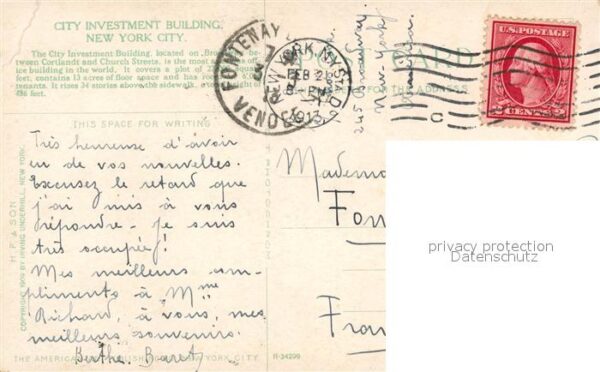 CITY INVESTMENT BUILDING,
NEW YORK CITY.
The City Investment Building, located on Broadway, be-
tween Cortlandt and Church Streets, is the most
ice building in the world. It covers a plot of
feet, contains 13 acres of floor space and has
It rises 34 stories above the sidewalk, a
486 feet.
THIS SPACE FOR WRITING
Très heureuse d'avoir
eu de vos nouvelles.
Excusez le retard que
j'ai mis à vous
répondre. Je suis
très occupée!
Mes meilleurs com-
pliments à Mme
Richard, à vous, mes
meilleurs souvenirs.
Berthe Baret
H. P. & SON
COPYRIGHT 1909 BY IRVING UNDERHILL, NEW YORK.
THE AMERICAN NEW YORK CITY
R-34299
POST CARD
FOR THE ADDRESS
FONTENAY
VENDEE
NEW YORK, N.Y. STA
FEB 21
PM
1913
New York
U.S. POSTAGE
2 CENTS 2
Madem
Fon
Fran
privacy protection
Datenschutz